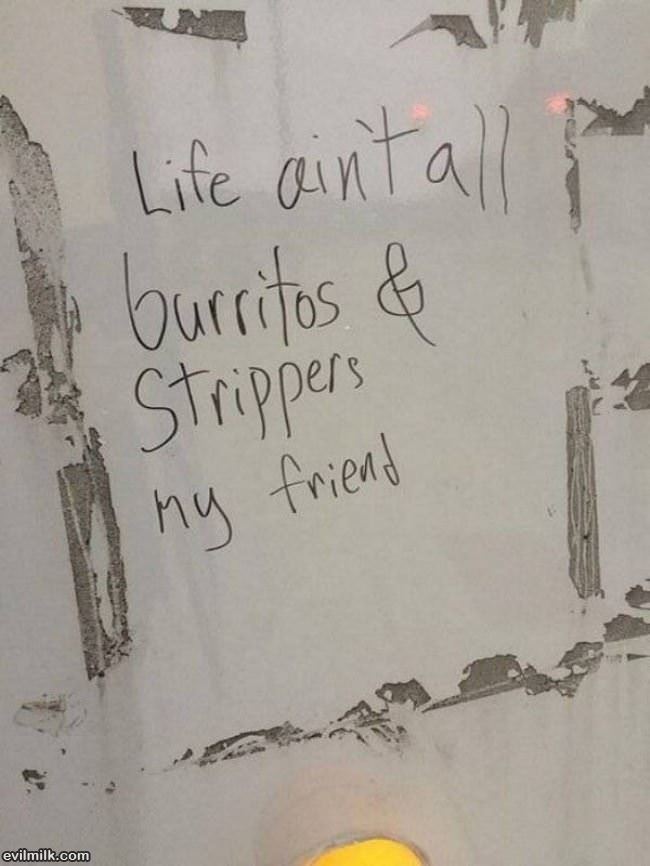 Life ain't all
burritos &
Strippers
my friend
evilmilk.com